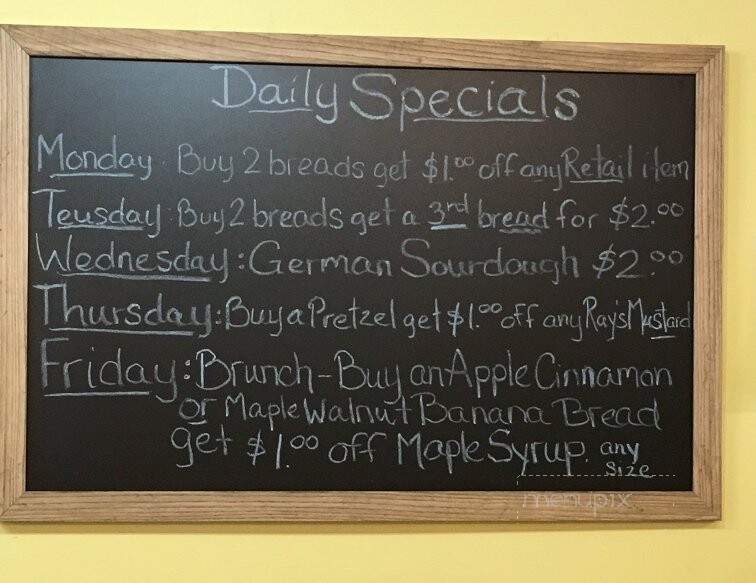 Daily Specials
Monday. Buy 2 breads get $1.00 off any Retail item
Teusday: Buy 2 breads get a 3rd bread for $2.00
Wednesday: German Sourdough $2.00
Thursday: Buy a Pretzel get $1.00 off any Ray's Mustard
Friday: Brunch - Buy an Apple Cinnamon
or Maple Walnut Banana Bread
get $1.00 off Maple Syrup. any
Size
menupix